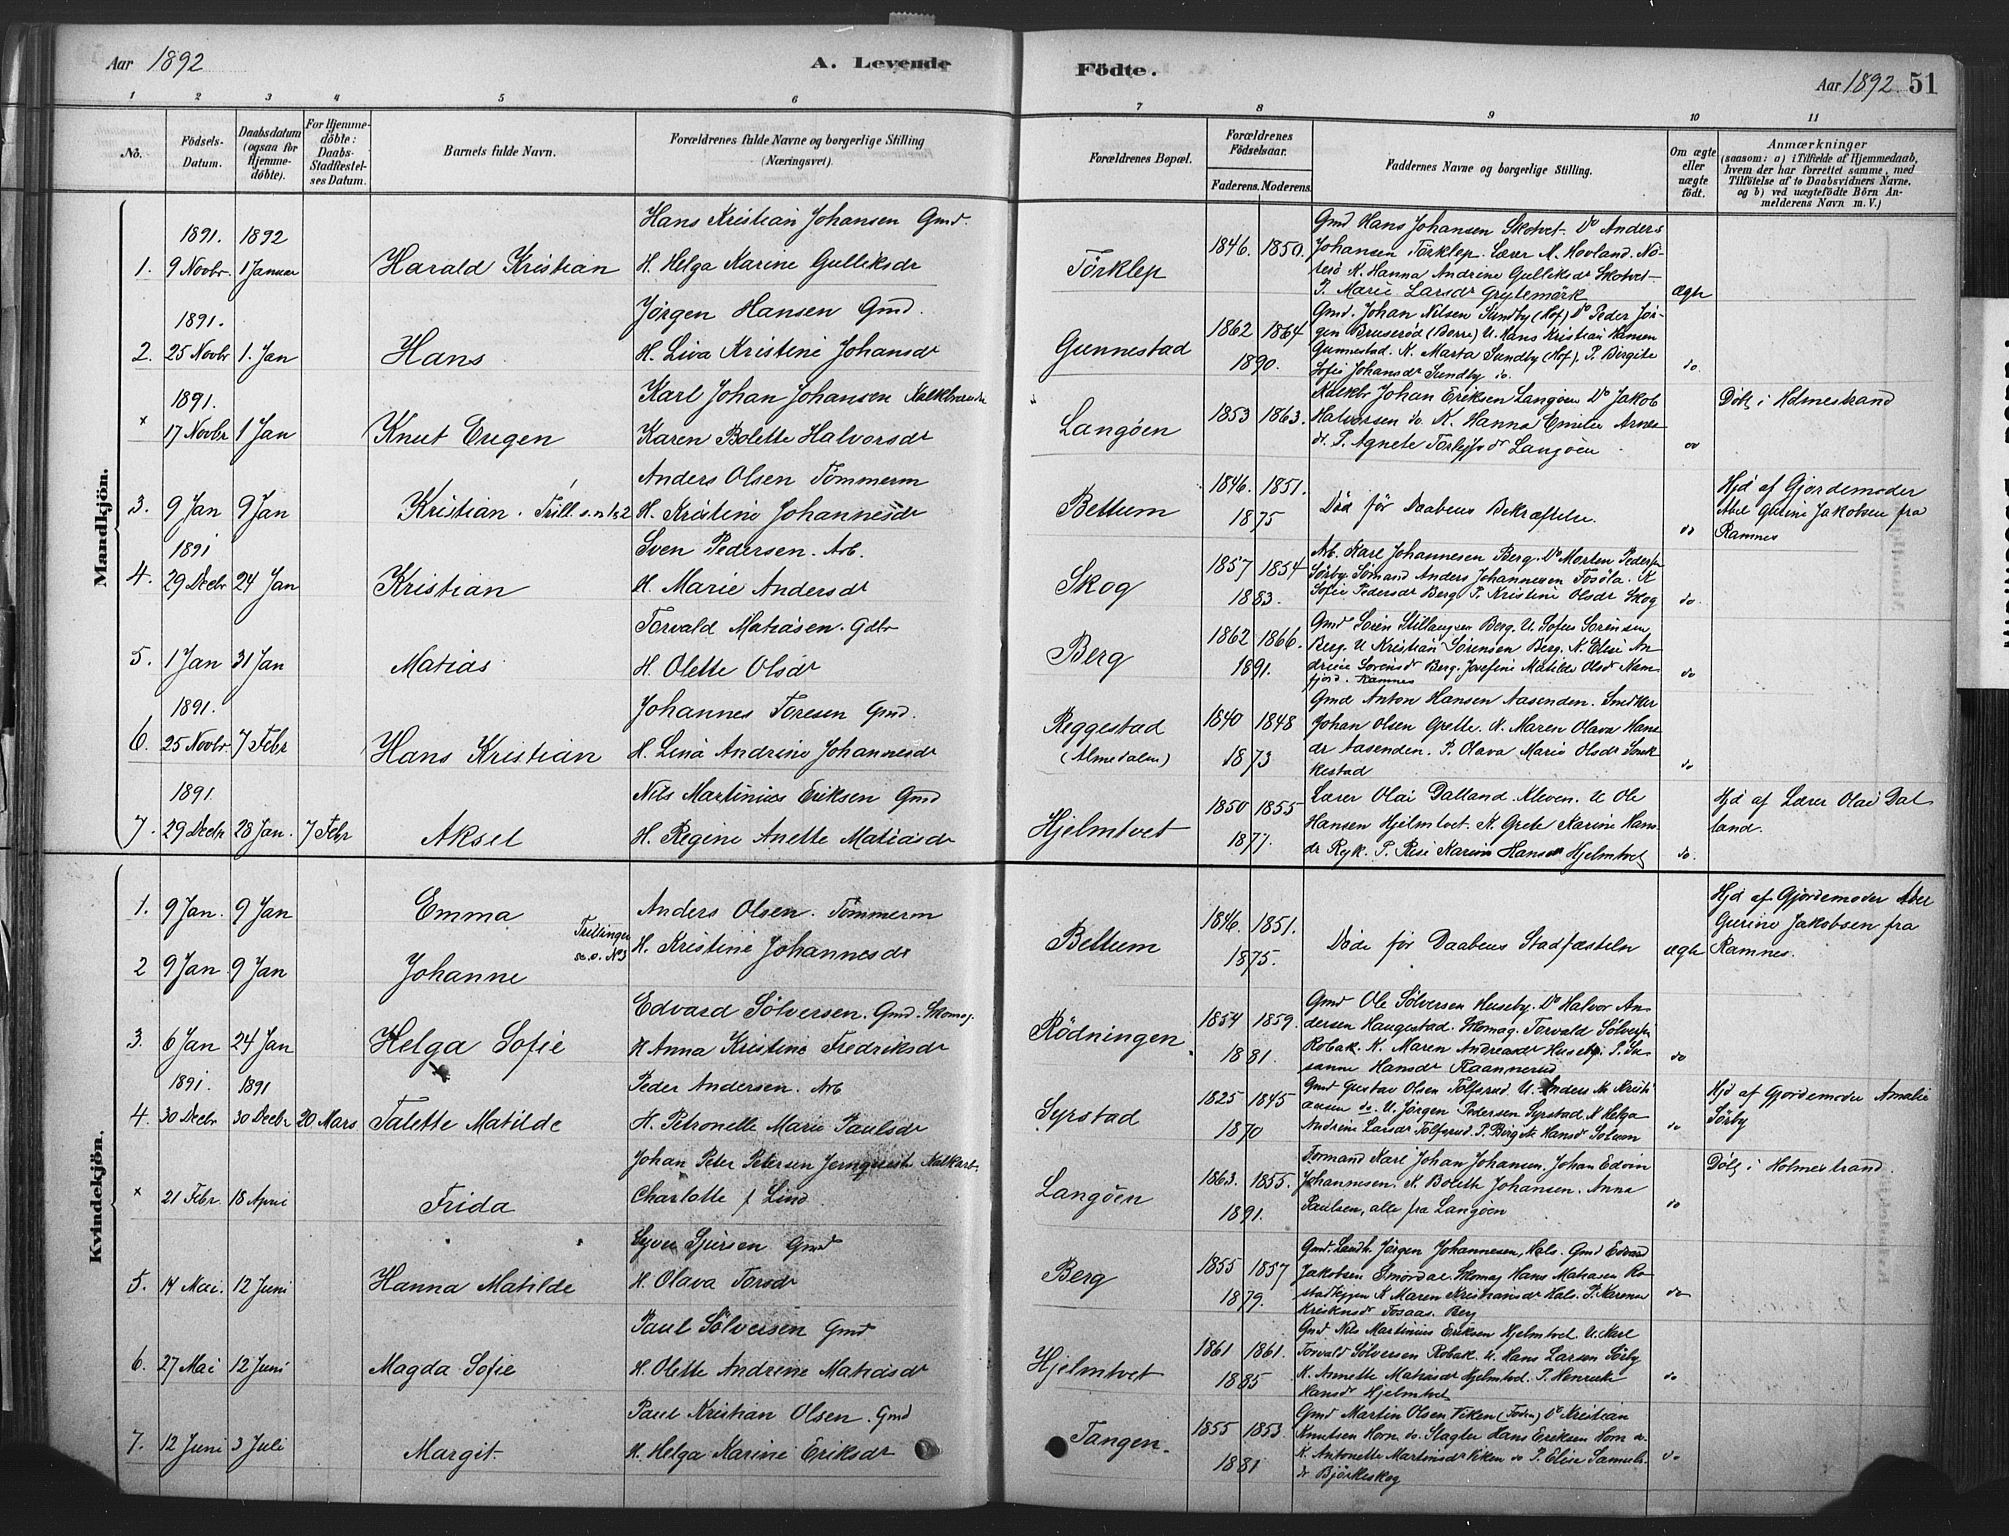 Aar 1892
A. Levende
Födte.
Aar 1892 51
1 2 3 4 5 6 7 8 9 10 11
No.
Födsels-
Datum.
Daabsdatum
(ogsaa for
Hjemme-
döbte).
For Hjemme-
döbte:
Daabs-
Stadfæstel-
ses Datum.
Barnets fulde Navn.
Forældrenes fulde Navne og borgerlige Stilling
(Næringsvei).
Forældrenes Bopæl.
Forældrenes
Födselsaar.
Faderens. Moderens.
Faddernes Navne og borgerlige Stilling.
Om ægte
eller
uægte
födt.
Anmærkninger
(saasom: a) i Tilfælde af Hjemmedaab,
hvem der har forrettet samme, med
Tilföielse af to Daabsvidners Navne,
og b) ved uægtefödte Börn An-
melderens Navn m. V.)
Mandkjön.
1891. 1892
1. 9 Novbr 1 Januar
Harald Kristian
Hans Kristian Johansen Gmd.
H. Helga Karine Gulliksdr
Törklep
1846. 1850.
Gmd Hans Johansen Skotvet. Do Anders
Johansen Törklep. Lærer M. Hovland. Nö-
tesö K. Hanna Andrine Gulliksdr Skotvet
P. Marie Larsdr Grytemörk
Ægte
1891.
2. 25 Novbr 1. Jan
Hans
Jörgen Hansen Gmd.
H. Liva Kristine Johansdr
Gunnestad
1862 1864
1890.
Gmd. Johan Nilsen Sundby (Hof) Do Peder Jör-
gen Bruseröd (Borre) U. Hans Kristian Hansen
Gunnestad. K. Marta Sundby (Hof). P. Birgite
Sofie Johansdr Sundby do.
do.
1891.
x 17 Novbr 1 Jan
Knut Eugen
Karl Johan Johansen Kalkbrænder
Karen Bolette Halvorsdr
Langöen
1853 1863.
Kalkbr Johan Eriksen Langöen Do Jakob
Halvorsen do. K. Hanna Emilie Arnes-
dr. P. Agnete Torleifsdr Langöen
do
Döbt i Holmestrand
3. 9 Jan 9 Jan
Kristian. Trill. s. n 1 & 2
Anders Olsen Tömmerm
H. Kristine Johannesdr
Bettum
1846. 1851.
1875
Död för Daabens Bekræftelse.
do
Hjd af Gjordemoder
Abel Gurine Jakobsen fra
Ramnes
1891
4. 29 Decbr 24 Jan
Kristian
Sven Pedersen. Arb.
H. Marie Andersdr
Skog
1857 1854
1883.
Arb. Karl Johannesen Berg. Do Morten Pedersen
Sörby. Sömand Anders Johannesen Fosöla. K
Sofie Pedersdr Berg P. Kristine Olsdr Skog
do.
5. 1 Jan 31 Jan
Matias
Torvald Matiasen. Gdbr
H. Olette Olsdr
Berg
1862 1866.
1891.
Gmd Sören Stillaugsen Berg. U. Sofus Sörensen
Berg. U Kristian Sörensen Berg. K. Elise An-
drine Sorensdr Berg. Josefine Matilde Olsdr Ram-
fjord. Ramnes
do
1891.
6. 25 Novbr. 7 Febr
Hans Kristian
Johannes Toresen Gmd.
H. Lina Andrine Johannesdr
Reggestad
(Almedalen)
1840 1848
1873
Gmd Anton Hansen Aasenden. Snedker
Johan Olsen Grette. K. Maren Olava Hans-
dr Aasenden. P. Olava Marie Olsdr
kestad
do
1891.
7. 29 Decbr 28 Jan. 7 Febr
Aksel
Nils Martinius Eriksen Gmd
H. Regine Anette Matiasdr
Hjelmtvet
1850 1855
1877.
Lærer Olai Dalland. Kleven. U Ole
Hansen Hjelmtvet. K. Grete Karine Hans-
dr Ryk. P. Risi Karine Hansdr Hjelmtvet
do.
Hjd af Lærer Olai Dal
land.
Kvindekjön.
1. 9 Jan. 9 Jan
Emma
Trillinger
se. o. No 3
Anders Olsen. Tömmerm
H. Kristine Johannesdr
Bettum
1846. 1851.
1875.
Döde för Daabens Stadfæstelse
ægte
Hjd af Gjordemoder Abel
Gurine Jakobsen fra
Ramnes.
2 9 Jan. 9 Jan
Johanne
3. 6 Jan 24 Jan
Helga Sofie
Edvard Sölversen. Gmd. Skomag.
H Anna Kristine Fredriksdr
Rödningen
1854 1859.
1881.
Gmd Ole Sölversen Huseby. Do Halvor An-
dersen Haugestad. Skomag. Torvald Sölversen
Robak. K. Maren Andreasdr Huseby. P. Su-
sanne Hansdr Raanneröd
do
1891. 1891
4. 30 Decbr 30 Decbr 20 Mars
Talette Matilde
Peder Andersen. Arb
H. Petronelle Marie Paulsdr
Syrstad
1825 1845
1870
Gmd Gustav Olsen Tolfsrud U. Anders M. Kristi
ansen do. U. Jörgen Pedersen Syrstad. K Helga
Andrine Larsdr Tolfsrud. P. Birgit Hansdr Solum
do
Hjd af Gjordemoder Amalie
Sörby
x 21 Febr. 18 April
Frida
Johan Peter Petersen Jernquist Kalkarb.
Charlotte f Lind
Langöen
1863. 1855.
1891.
Formand Karl Johan Johansen. Johan Edvin
Johannesen. K. Bolette Johansen. Anna
Paulsen, alle fra Langöen
do
Döbt i Holmestrand.
5. 14 Mai. 12 Juni
Hanna Matilde
Syver Sjursen Gmd
H. Olava Torsdr
Berg
1855 1857
1879.
Gmd. Landh. Jörgen Johannesen, Hals. Gmd Edvard
Jakobsen Smördal. Skomag Hans Matiasen Ro-
stadeggen K Maren Kristiansdr Hals. P. Karen
Kristensdr Fosaas. Berg
do
6. 27 Mai 12 Juni
Magda Sofie
Paul Sölversen Gmd
H. Olette Andrine Matiasdr
Hjelmtvet
1861 1861.
1885
Gmd Nils Martinius Eriksen Hjelmtvet. U. Karl
Torvald Sölversen Robak. U. Hans Larsen Sörby
K. Annette Matiasdr Hjelmtvet. P. Henrikke
Hansdr Hjelmtvet
do
7. 12 Juni 3 Juli
Margit.
Paul Kristian Olsen. Gmd
H. Helga Karine Eriksdr
Tangen.
1855 1853.
1881
Gmd Martin Olsen Viken (Foden) Do Kristian
Knutsen Horn do. Slagter Hans Eriksen Horn do.
K. Antonette Martinsdr Viken do P. Elise Samuels-
dr Björkeskog
do